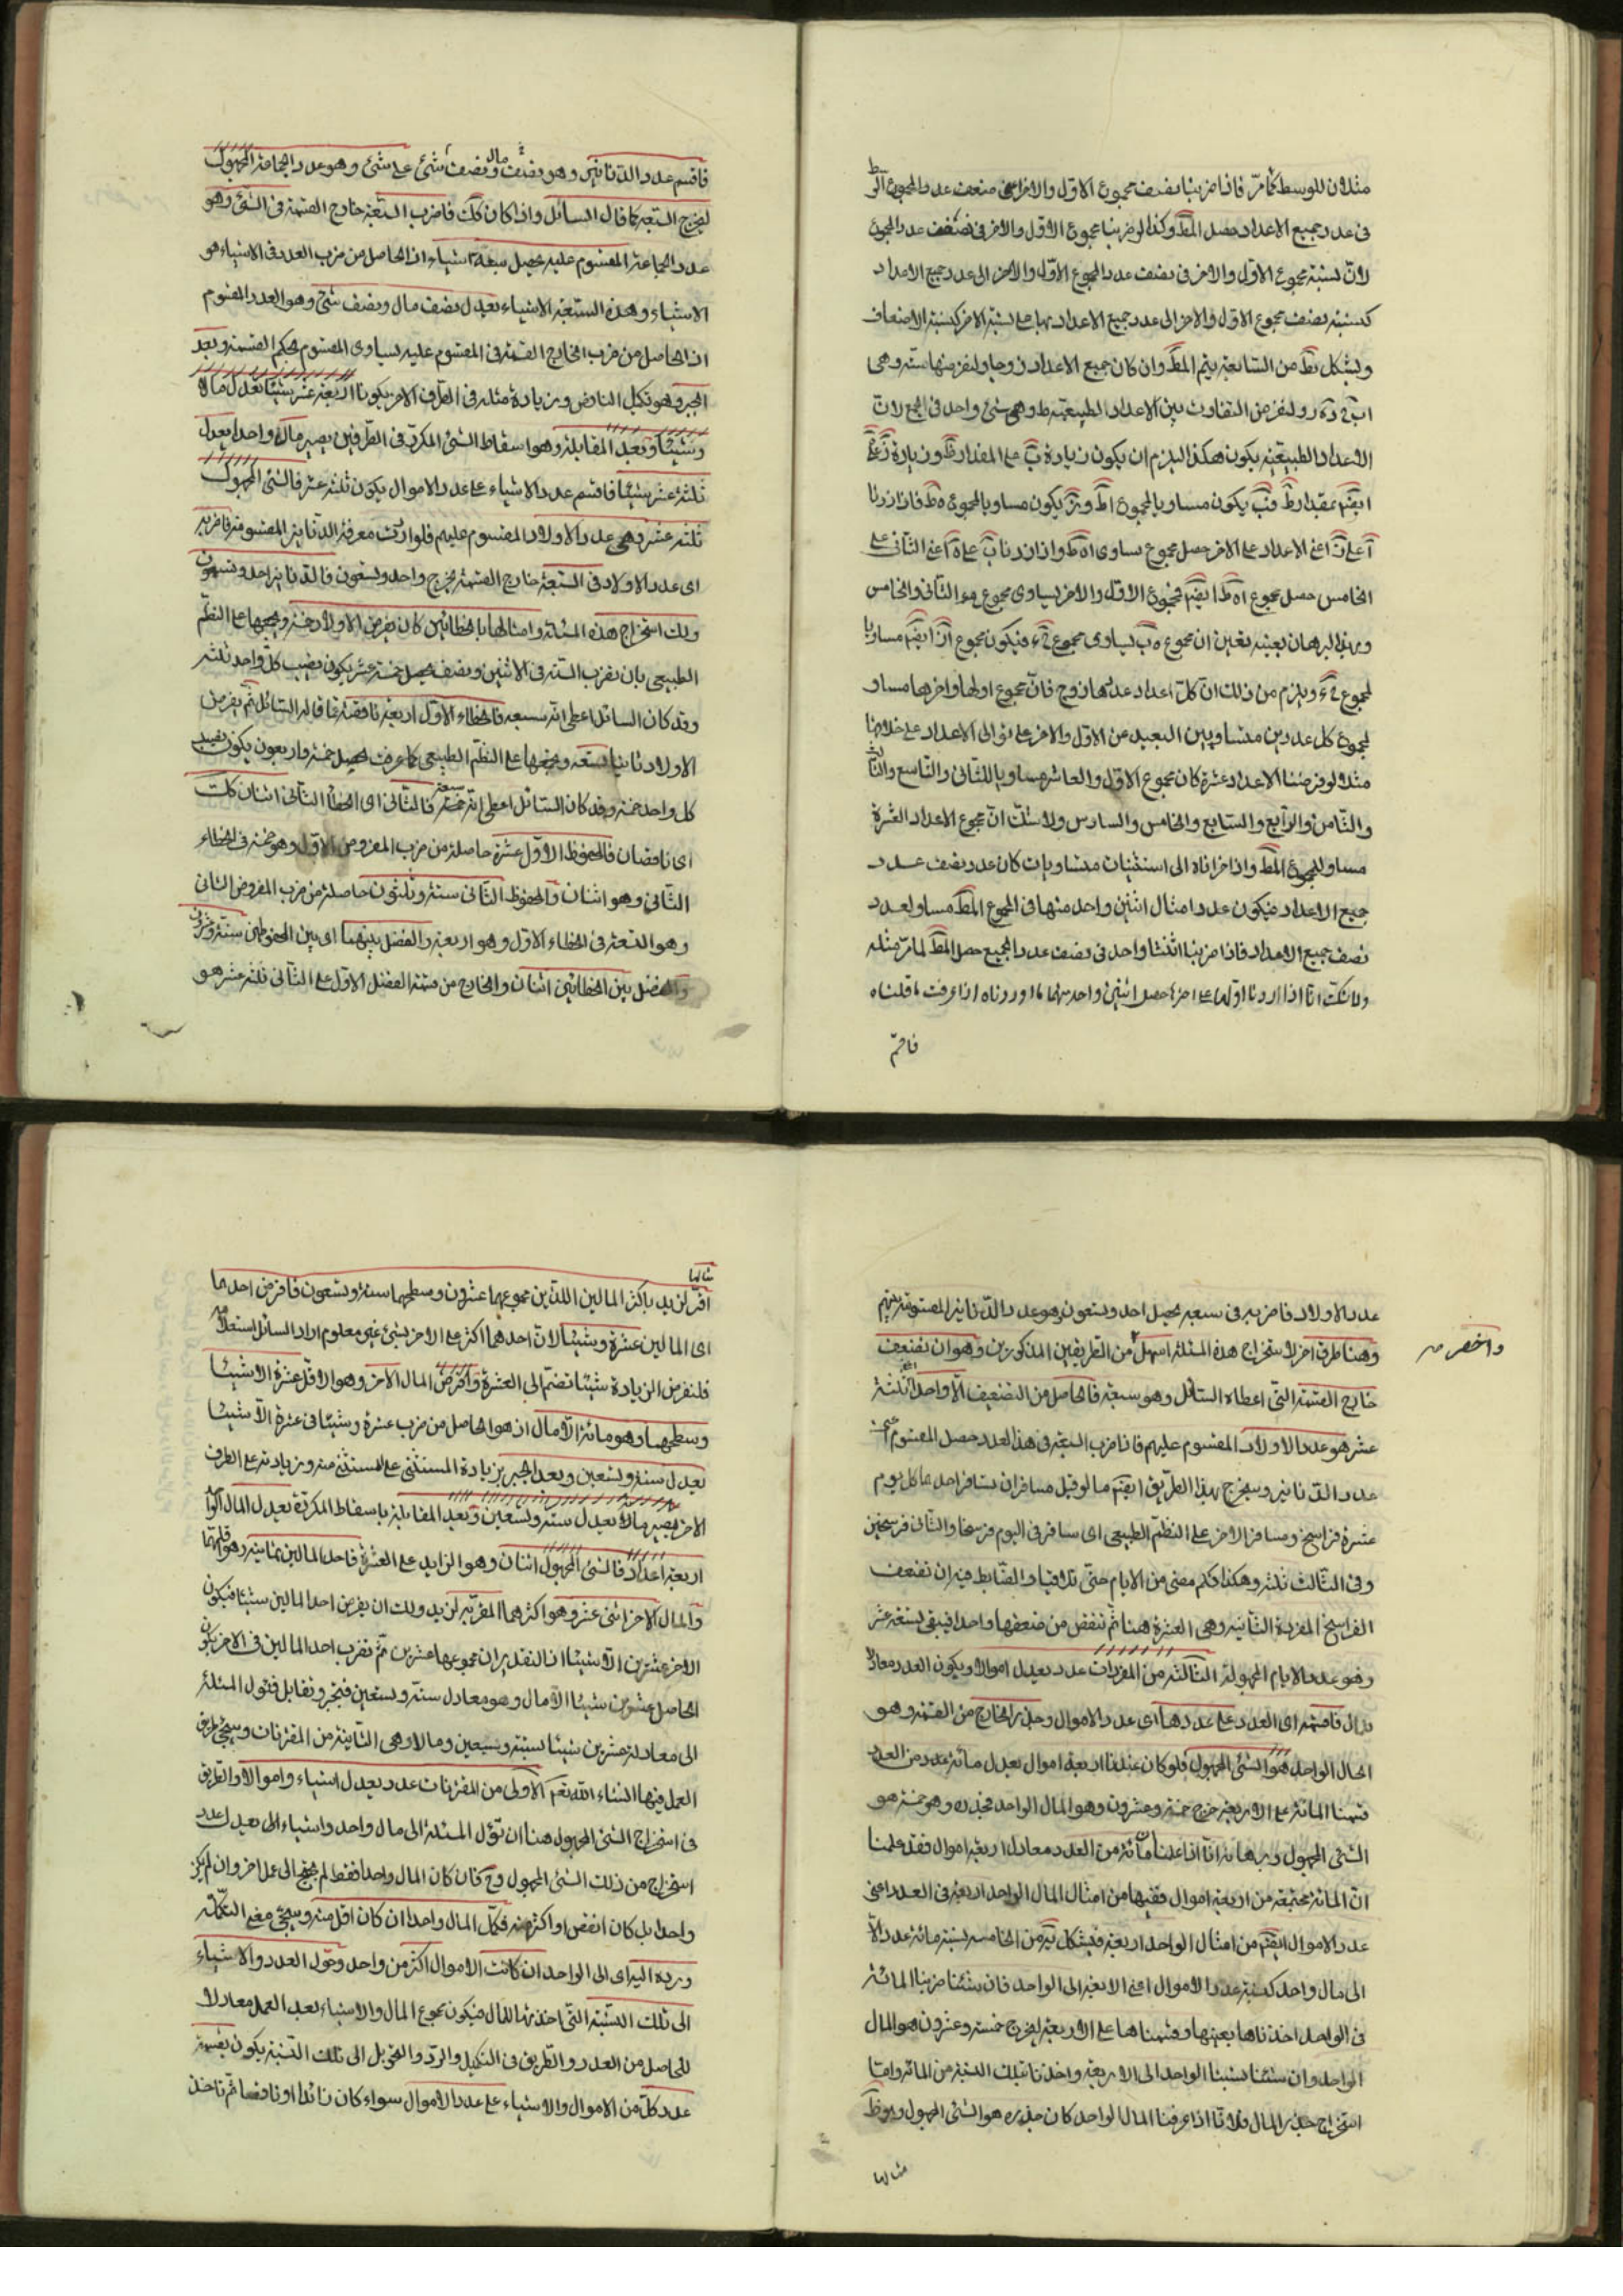 مثلان للوسط كما مرّ فاذا ضربنا نصف مجموع الاوّل والاخر اعنى ضعف عدد المجموع الوسط
فى عدد جميع الاعداد حصل المط وكذا لو ضربنا مجموع الاوّل والاخر فى نصف عدد المجموع
لانّ نسبة مجموع الاوّل والاخر فى نصف عدد المجموع الاوّل والاخر الى عدد جميع الاعداد
كنسبة نصف مجموع الاوّل والاخر الى عدد جميع الاعداد
من السابعة يتم المط وان كان جميع الاعداد زوجا ولنفرضها ستة وهى
ولنفرض التفاوت بين الاعداد الطبيعية ط وهى شئ واحد فى الجميع لانّ
الاعداد الطبيعية يكون هكذا فيلزم ان يكون زيادة ب على المقدار ط وزيادة
ايضا بمقدار ط يكون مساويا لمجموع يكون مساويا لمجموع ه ط فاذا زدنا
اعنى الاعداد على الاخر حصل مجموع يساوى واذا زدنا ب على ه اعنى الثانى على
الخامس حصل مجموع ا ه ط ايضا فمجموع الاوّل والاخر يساوى مجموع الثانى والخامس
وبهذا البرهان بعينه تعين ان مجموع ه ب يساوى مجموع فيكون مجموع ايضا مساويا
لمجموع ويلزم من ذلك انّ كلّ اعداد عدّتها زوج فانّ مجموع اولها واخرها مساو
لمجموع كل عددين متساويين البعيد عن الاوّل والاخر على توالى الاعداد على خلافها
مثلا لو فرضنا الاعداد عشرة كان مجموع الاوّل والعاشر مساويا للثانى والتاسع والثالث
والثامن والرابع والسابع والخامس والسادس ولا شك انّ مجموع الاعداد العشرة
مساو للمجموع المط واذا اخذناه الى اثنينات متساويات كان عدد نصف عدد
جميع الاعداد فيكون عدد امثال اثنين واحد منها فى المجموع المط مساو لعدد
نصف جميع الاعداد فاذا ضربنا اثنينا واحد فى نصف عدد الجميع حصل المط لما مرّ مثله
ولا شك انا اذا زدنا اولها على اخرها حصل اثنين واحد منهما ما اوردناه اذا عرفت ما قلناه
فاقسم
فاقسم عدد الدنانير وهو نصف مال ونصف شئ على شئ وهو عدد الجماعة المجهول
ليخرج السبعة كما قال السائل واذا كان كك فاضرب السبعة خارج القسمة فى الشئ وهو
عدد الجماعة المقسوم عليه يحصل سبعة اشياء اذ الحاصل من ضرب العدد فى الاشياء هو
الاشياء وهذه السبعة الاشياء يعدل نصف مال ونصف شئ وهو العدد المقسوم
اذ الحاصل من ضرب الخارج القسمة فى المقسوم عليه يساوى المقسوم بحكم القسمة وبعد
الجبر وهو تكميل الناقص وزيادة مثله فى الطرف الاخر يكون اربعة عشر شيئا يعدل مالا
وشيئا وبعد المقابلة وهو اسقاط الشئ المكرر فى الطرفين يصير مالا واحدا يعدل
ثلثة عشر شيئا فاقسم عدد الاشياء على عدد الاموال يكون ثلثة عشر فالشئ المجهول
ثلثة عشر وهى عدد الاولاد المقسوم عليهم فلو اردت معرفة الدنانير المقسومة فاضربه
اى عدد الاولاد فى السبعة خارج القسمة يخرج واحد وتسعون فالدنانير احد وتسعون
ولك استخراج هذه المسئلة وامثالها بالخطائين كان يفرض الاولاد خمسة ويجمعها على النظم
الطبيعى بان تضرب الستة فى الاثنين ونصف يحصل خمسة عشر يكون نصيب كل واحد ثلثة
وقد كان السائل اعطى انه سبعة فالخطاء الاوّل اربعة ناقصة عما قاله السائل ثم يفرض
الاولاد ثانيا تسعة ويجمعها على النظم الطبيعى كما عرفت يحصل خمسة واربعون يكون نصيب
كل واحد خمسة وقد كان السائل اعطى انه سبعة فالثانى اى الخطأ الثانى اثنان كك
اى ناقصان فالمحفوظ الاوّل عشرة حاصلة من ضرب المفروض الاول وهو خمسة فى الخطاء
الثانى وهو اثنان والمحفوظ الثانى ستة وثلثون حاصلة من ضرب المفروض الثانى
وهو التسعة فى الخطاء الاوّل وهو اربعة والفضل بينهما اى بين المحفوظين ستة وعشرون
والفضل بين الخطائين اثنان والخارج من قسمة الفضل الاوّل على الثانى ثلثة عشر هو
عدد الاولاد فاضربه فى سبعة يحصل احد وتسعون هو عدد الدنانير المقسومة بينهم
وهنا طريق اخر لاستخراج هذه المسئلة اسهل من الطريقين المذكورين وهو ان تضعف
واخصر منه
خارج القسمة التى اعطاه السائل وهو سبعة فالحاصل من التضعيف الا واحدا ثلثة
عشر هو عدد الاولاد المقسوم عليهم فاذا ضرب السبعة فى هذا العدد حصل المقسوم اعنى
عدد الدنانير وسيخرج بهذا الطريق ايضا ما لو قيل مسافران سافر احدهما كل يوم
عشرة فراسخ ومسافر الاخر على النظم الطبيعى اى سافر فى اليوم فرسخا والثانى فرسخين
وفى الثالث ثلثة وهكذا فكم مضى من الايام حتى تلاقيا والضابط فيه ان تضعف
الفراسخ المفروضة الثانية وهى العشرة هنا ثم تنقص من ضعفها واحدا فيبقى تسعة عشر
وهو عدد الايام المجهولة الثالثة من المفردات عدد يعدل اموالا ويكون العدد معادلا
للمال فاقسمه اى العدد على عددها اى عدد الاموال وجذر الخارج من القسمة وهو
المال الواحد هو الشئ المجهول فلو كان عندنا اربعة اموال يعدل مائة عدد من العدد
قسمنا المائة على الاربعة خرج خمسة وعشرون وهو المال الواحد فجذره وهو خمسة هو
الشئ المجهول وبرهانه انا اذا علمنا ان مائة من العدد معادل اربعة اموال فقد علمنا
انّ المائة مجتمعة من اربعة اموال ففيها من امثال المال الواحد اربعة فى العدد اعنى
عدد الاموال ايضا من امثال الواحد اربعة فبشكل من الخامسة نسبة مائة عدد الا
الى مال واحد كنسبة عدد الاموال اعنى الاربعة الى الواحد فان شئنا ضربنا المائة
فى الواحد اخذناها بعينها وقسمناها على الاربعة ليخرج خمسة وعشرون هو المال
الواحد وان شئنا نسبنا الواحد الى الاربعة واخذنا بتلك النسبة من المائة واما
استخراج جذر المال فلانا اذا عرفنا المال الواحد كان جذره هو الشئ المجهول وهو ظ
مثالها
مثالها
اقر لزيد باكثر المالين اللذين مجموعهما عشرون ومسطحهما ستة وتسعون فافرض احدهما
اى المالين عشرة وشيئا لانّ احدهما اكثر على الاخر بشئ غير معلوم اراد السائل استعلامه
فلنفرض الزيادة شيئا تضم الى العشرة وافرض المال الاخر وهو الاقل عشرة الا شيئا
ومسطحهما وهو مائة الا مال اذ هو الحاصل من ضرب عشرة وشيئا فى عشرة الا شيئا
يعدل ستة وتسعين وبعد الجبر بزيادة المستثنى على المستثنى منه وزيادته على الطرف
الاخر يصير مالا يعدل ستة وتسعين وبعد المقابلة باسقاط المكررة يعدل المال الواحد
اربعة اعداد فالشئ المجهول اثنان وهو الزايد على العشرة فاحد المالين ثمانية وهو اقلهما
والمال الاخر اثنى عشر وهو اكثرهما المقر به لزيد ولك ان يفرض احد المالين شيئا فيكون
الاخر عشرين الا شيئا اذ التقدير ان مجموعهما عشرين ثم تضرب احد المالين فى الاخر يكون
الحاصل عشرين شيئا الا مال وهو معادل ستة وتسعين فتجبر وتقابل فتول المسئلة
الى معادلة عشرين شيئا ستة وتسعين ومالا وهى الثانية من المقترنات وسيجئ طريق
العمل فيها انشاء الله تعم الاولى من المقترنات عدد يعدل اشياء واموالا والطريق
فى استخراج الشئ المجهول هنا ان تؤل المسئلة الى مال واحد واشياء الى يعدل عدد
استخراج من ذلك الشئ المجهول وح فان كان المال واحدا فقط لم يحتج الى عمل اخر وان لم يكن
واحدا بل كان انقص او اكثر منه فكمّل المال واحدا ان كان اقل منه وسيجئ معنى التكملة
ورده اليه اى الى الواحد ان كانت الاموال اكثر من واحد وحوّل العدد والاشياء
الى تلك النسبة التى اخذ بها المال فيكون مجموع المال والاشياء بعد العمل معادلا
للحاصل من العدد والطريق فى التكميل والرد والتحويل الى تلك النسبة يكون بقسمة
عدد كل من الاموال والاشياء على عدد الاموال سواء كان زائدا او ناقصا ثم تاخذ